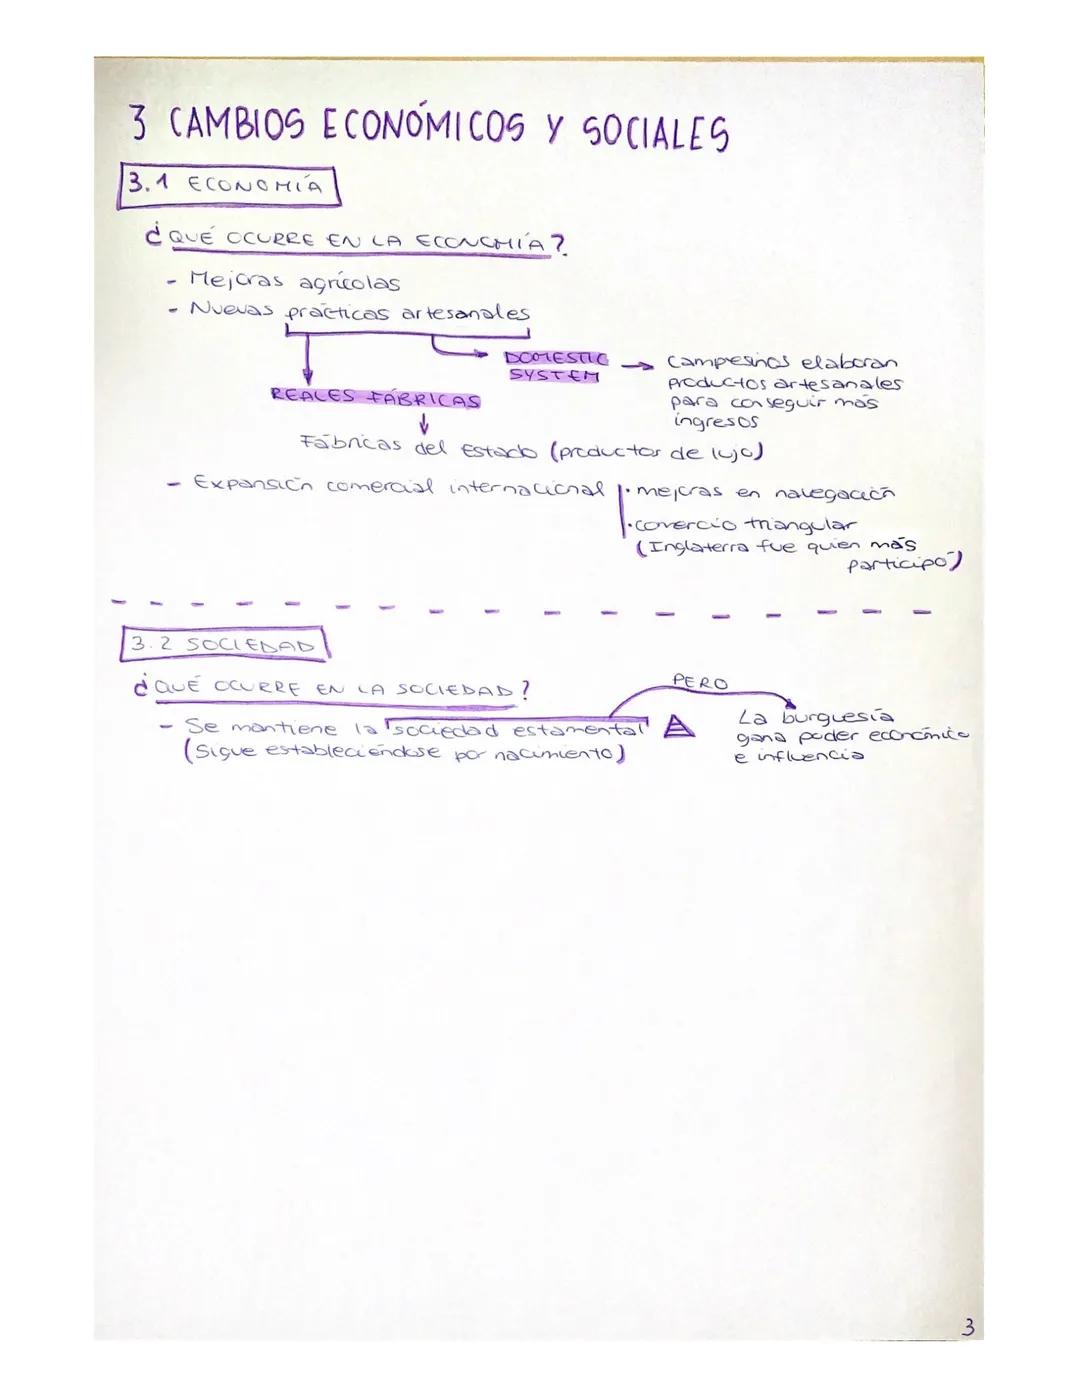 3 CAMBIOS ECONÓMICOS Y SOCIALES
3.1 ECONOMÍA
¿QUÉ OCURRE EN LA ECONOMÍA?
- Mejoras agrícolas
- Nuevas prácticas artesanales
DOMESTIC SYSTEM → campesinos elaboran
productos artesanales
para conseguir más
ingresos
REALES FÁBRICAS
↓
Fábricas del Estado (productos de lujo)
- Expansión comercial internacional
· mejoras en navegación
· comercio triangular
(Inglaterra fue quien más
participó)
3.2 SOCIEDAD
¿QUÉ OCURRE EN LA SOCIEDAD?
- Se mantiene la sociedad estamental
(Sigue estableciéndose por nacimiento)
PERO
La burguesía
gana poder económico
e influencia
3